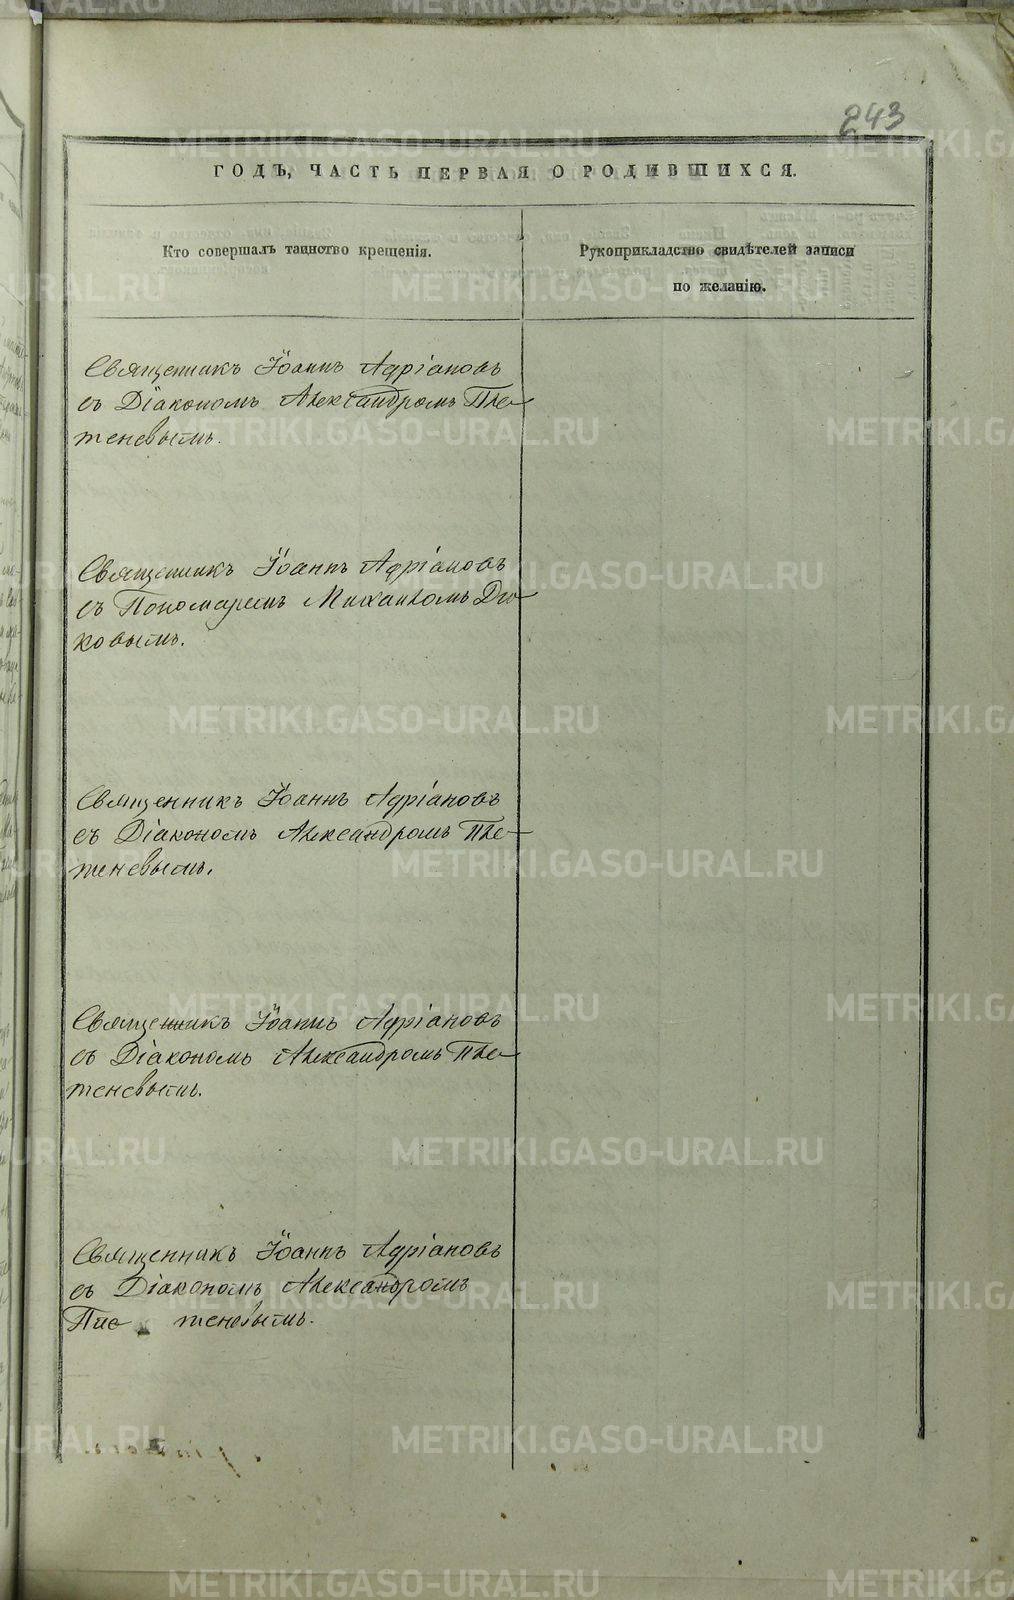 243
ГОДЪ, ЧАСТЬ ПЕРВАЯ О РОДИВШИХСЯ.
Кто совершалъ таинство крещенія.
Рукоприкладство свидѣтелей записи
по желанію.
Священникъ Іоаннъ Адріановъ
съ Діакономъ Александромъ Пле-
теневымъ.
Священникъ Іоаннъ Адріановъ
съ Пономаремъ Михаиломъ Дю-
ковымъ.
Священникъ Іоаннъ Адріановъ
съ Діакономъ Александромъ Пле-
теневымъ.
Священникъ Іоаннъ Адріановъ
съ Діакономъ Александромъ Пле-
теневымъ.
Священникъ Іоаннъ Адріановъ
съ Діакономъ Александромъ
Пле теневымъ.
METRIKI.GASO-URAL.RU